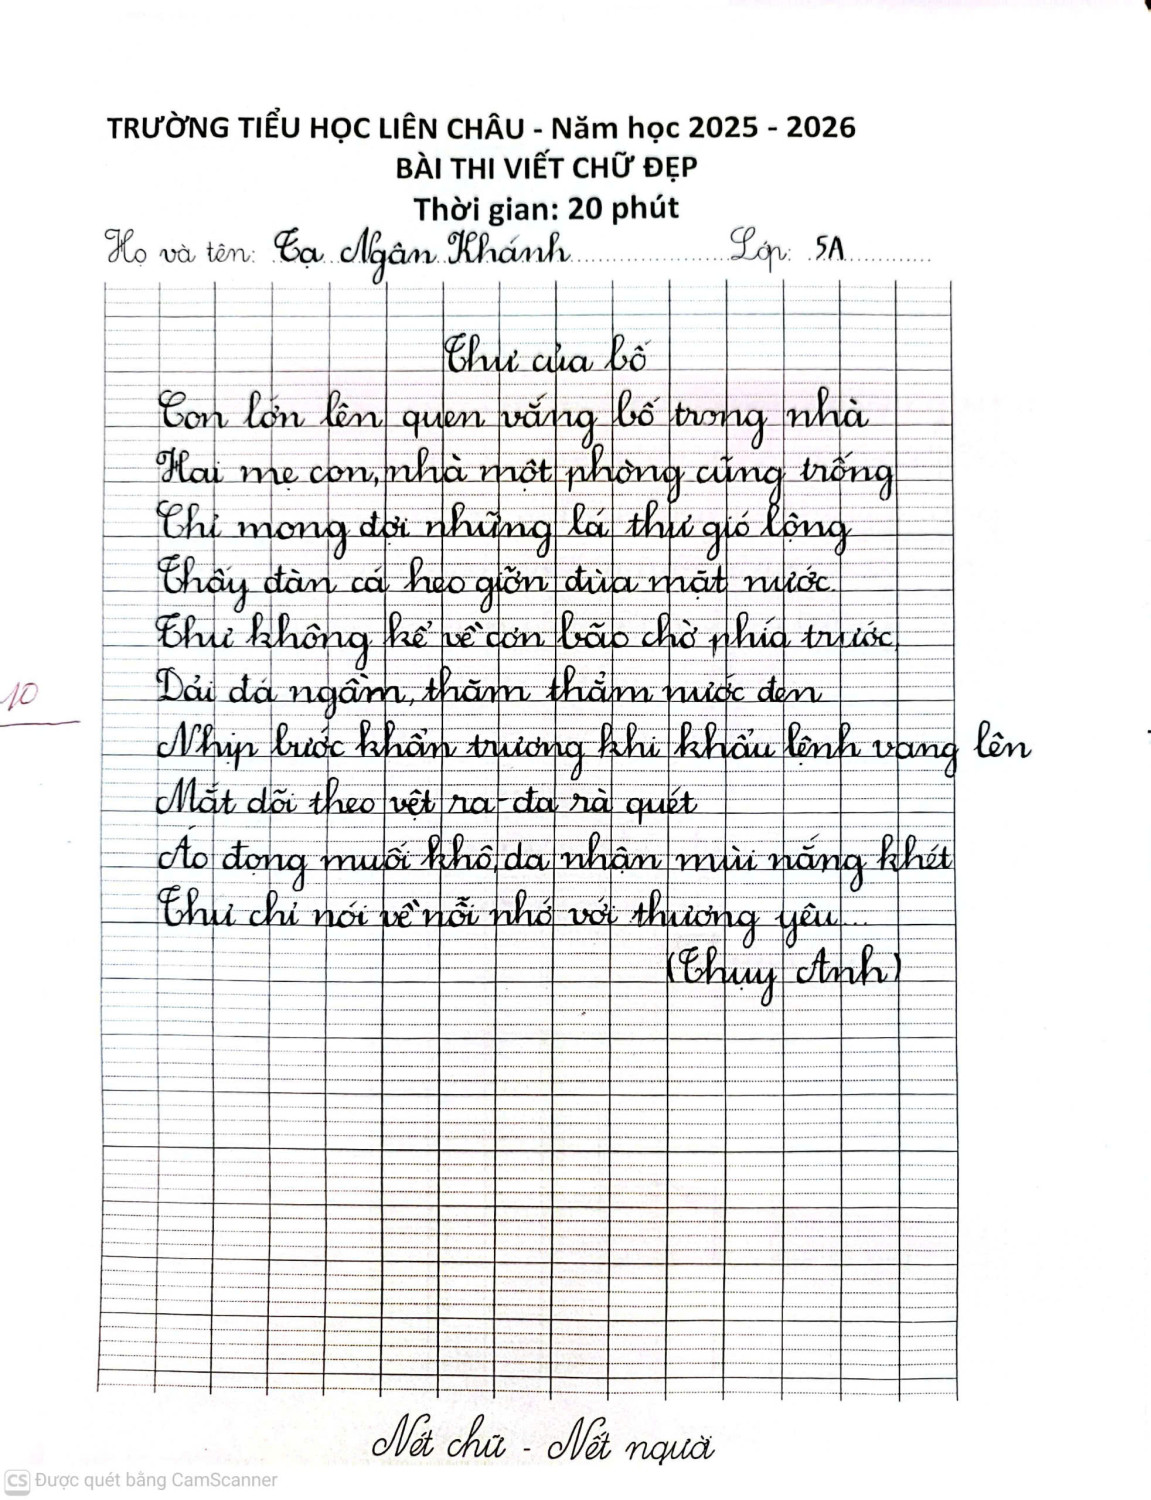 TRƯỜNG TIỂU HỌC LIÊN CHÂU - Năm học 2025 - 2026
BÀI THI VIẾT CHỮ ĐẸP
Thời gian: 20 phút
Họ và tên: Tạ Ngân Khánh Lớp: 5A
Thư của bố
Con lớn lên quen vắng bố trong nhà
Hai mẹ con, nhà một phòng cũng trống
Chỉ mong đợi những lá thư gió lộng
Thấy đàn cá heo giỡn đùa mặt nước.
Thư không kể về cơn bão chờ phía trước,
Dải đá ngầm, thăm thẳm nước đen
Nhịp bước khẩn trương khi khẩu lệnh vang lên
Mắt dõi theo vệt ra-đa rà quét
Áo đọng muối khô, da nhận mùi nắng khét
Thư chỉ nói về nỗi nhớ với thương yêu...
(Thụy Anh)
10
Nét chữ - Nết người
CS Được quét bằng CamScanner